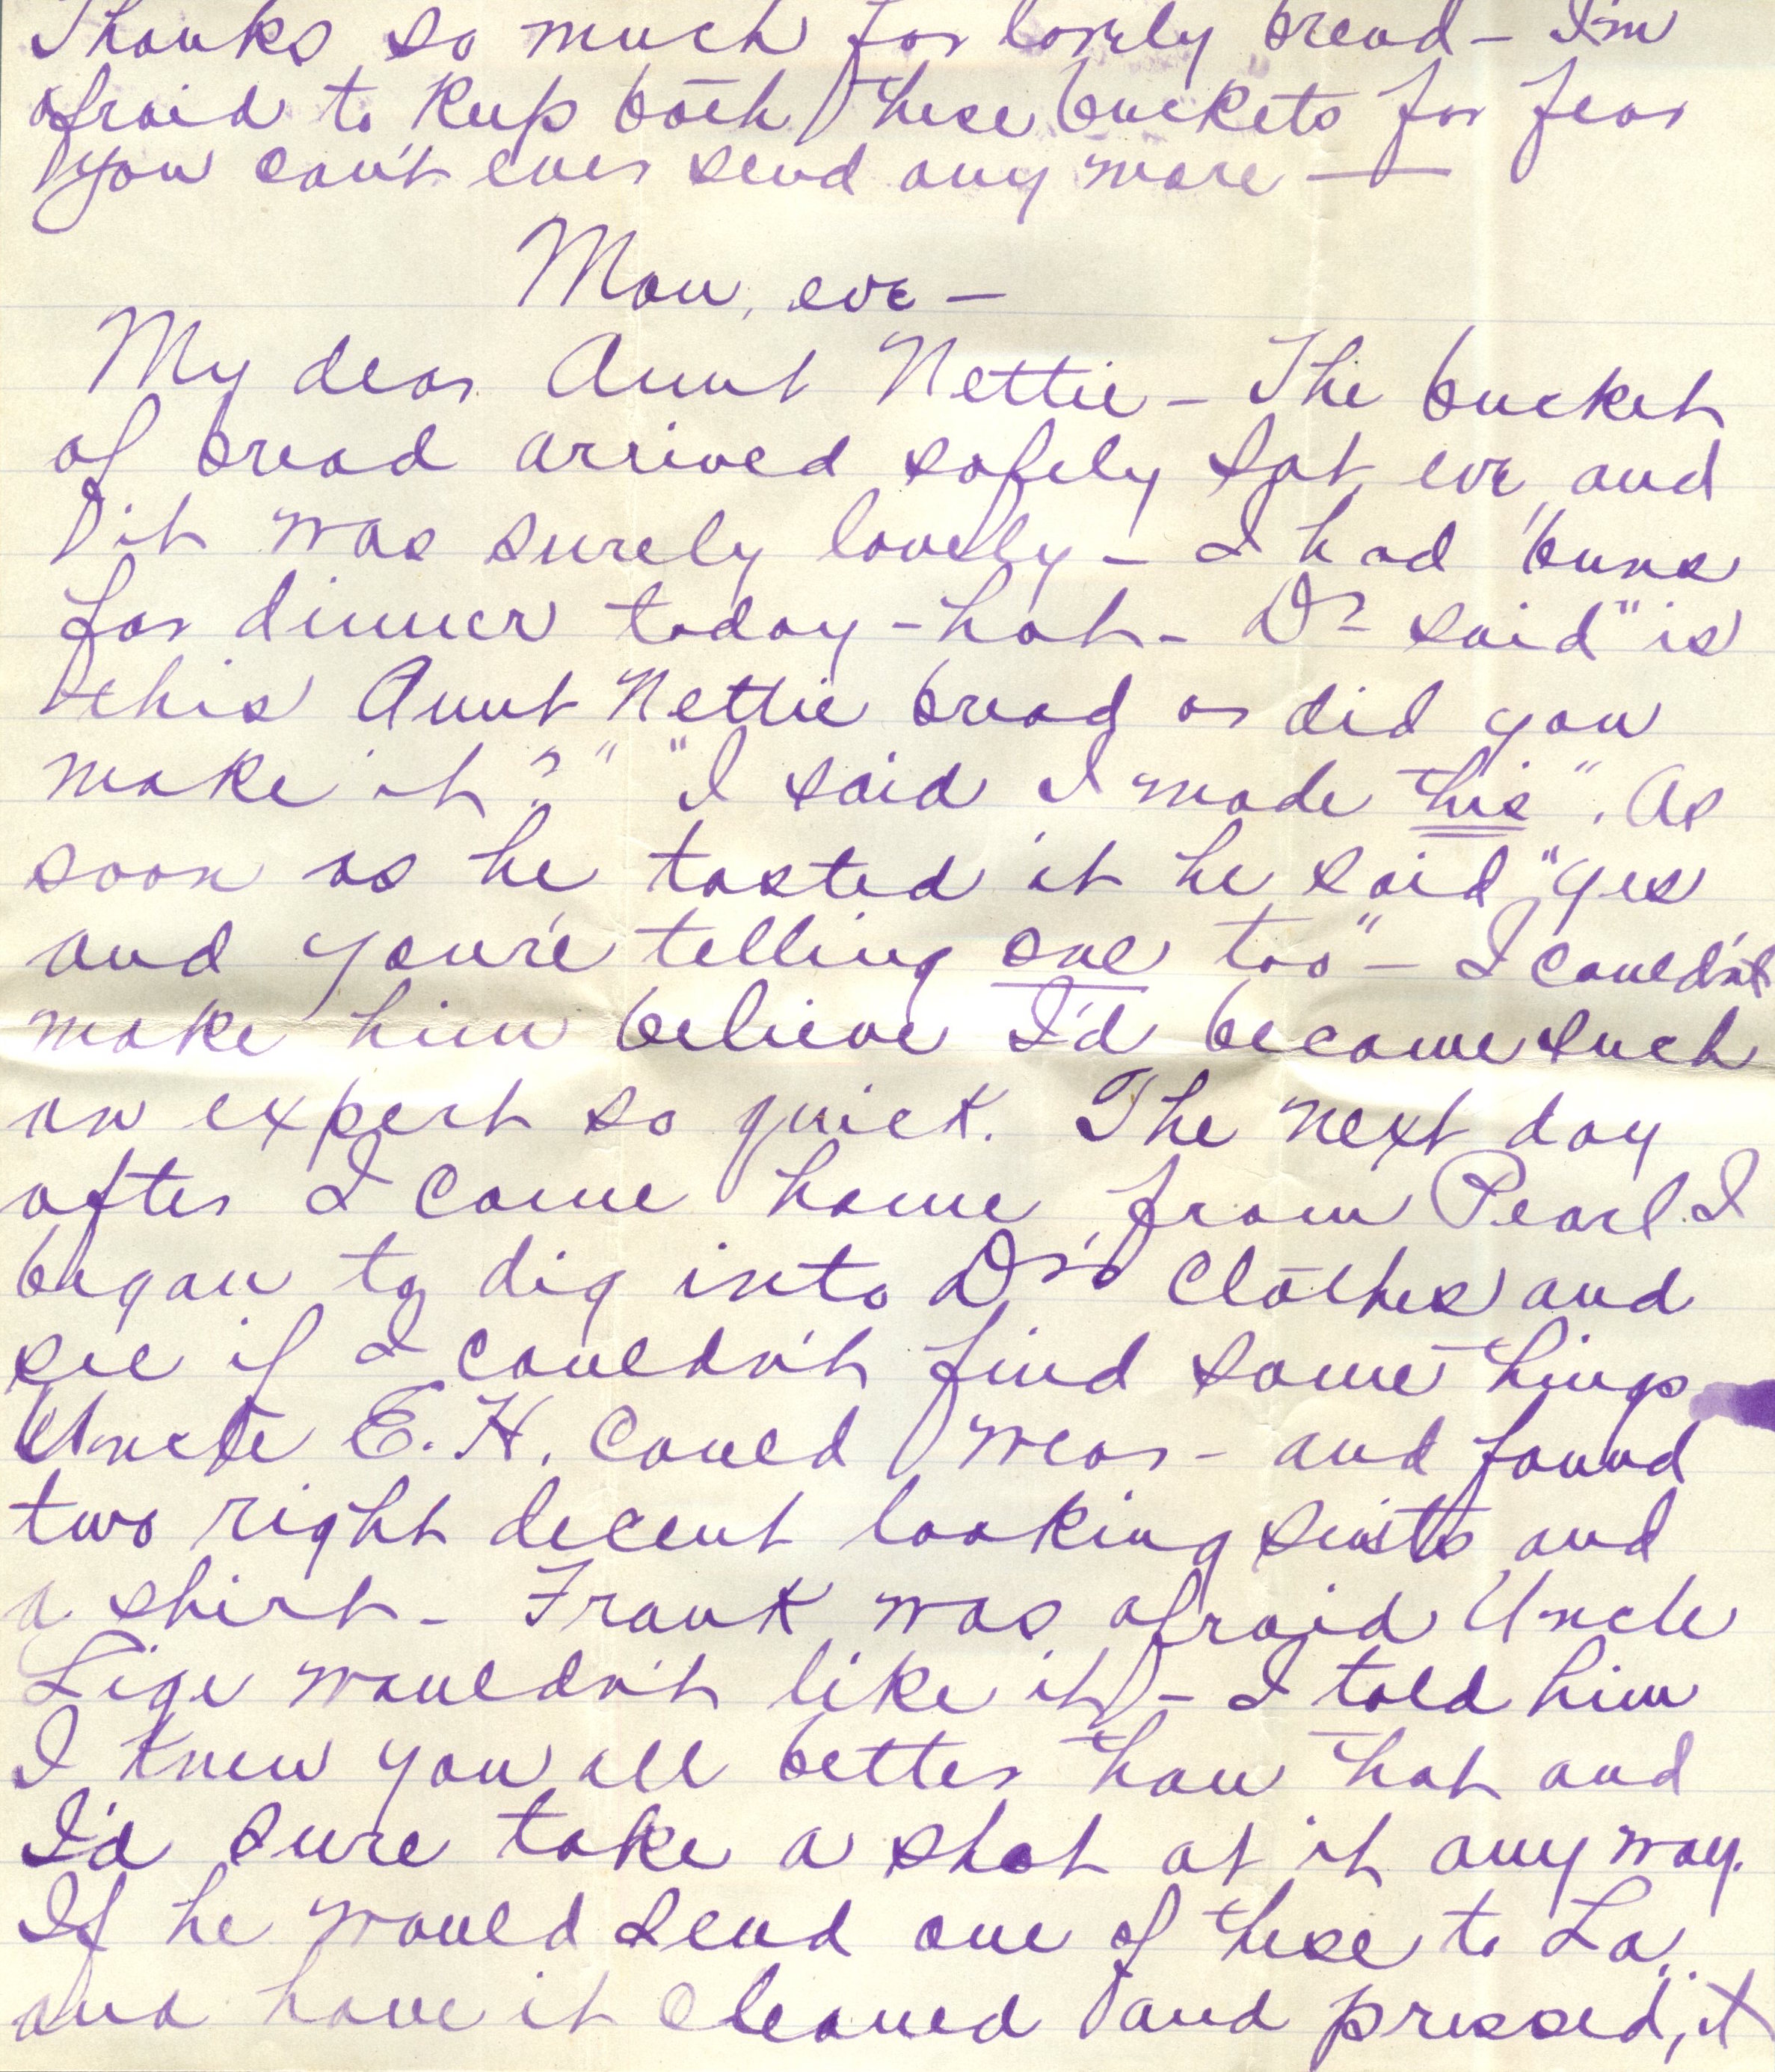 Thanks so much for lovely bread - I'm
afraid to keep both these buckets for fear
you can't ever send any more —
Mon, eve -
My dear Aunt Nettie - The bucket
of bread arrived safely Sat, eve, and
it was surely lovely - I had buns
for dinner today - hot - Dr said "is
this Aunt Nettie bread or did you
make it?" "I said I made this". As
soon as he tasted it he said, "yes
and you're telling one too" - I couldn't
make him believe I'd become such
an expert so quick. The next day
after I came home from Pearl I
began to dig into Dr's clothes and
see if I couldn't find some things
Uncle E. H. could wear - and found
two right decent looking suits and
a shirt - Frank was afraid Uncle
Lige wouldn't like it - I told him
I knew you all better than that and
I'd sure take a shot at it any way.
If he would send one of these to La.
and have it cleaned and pressed, it